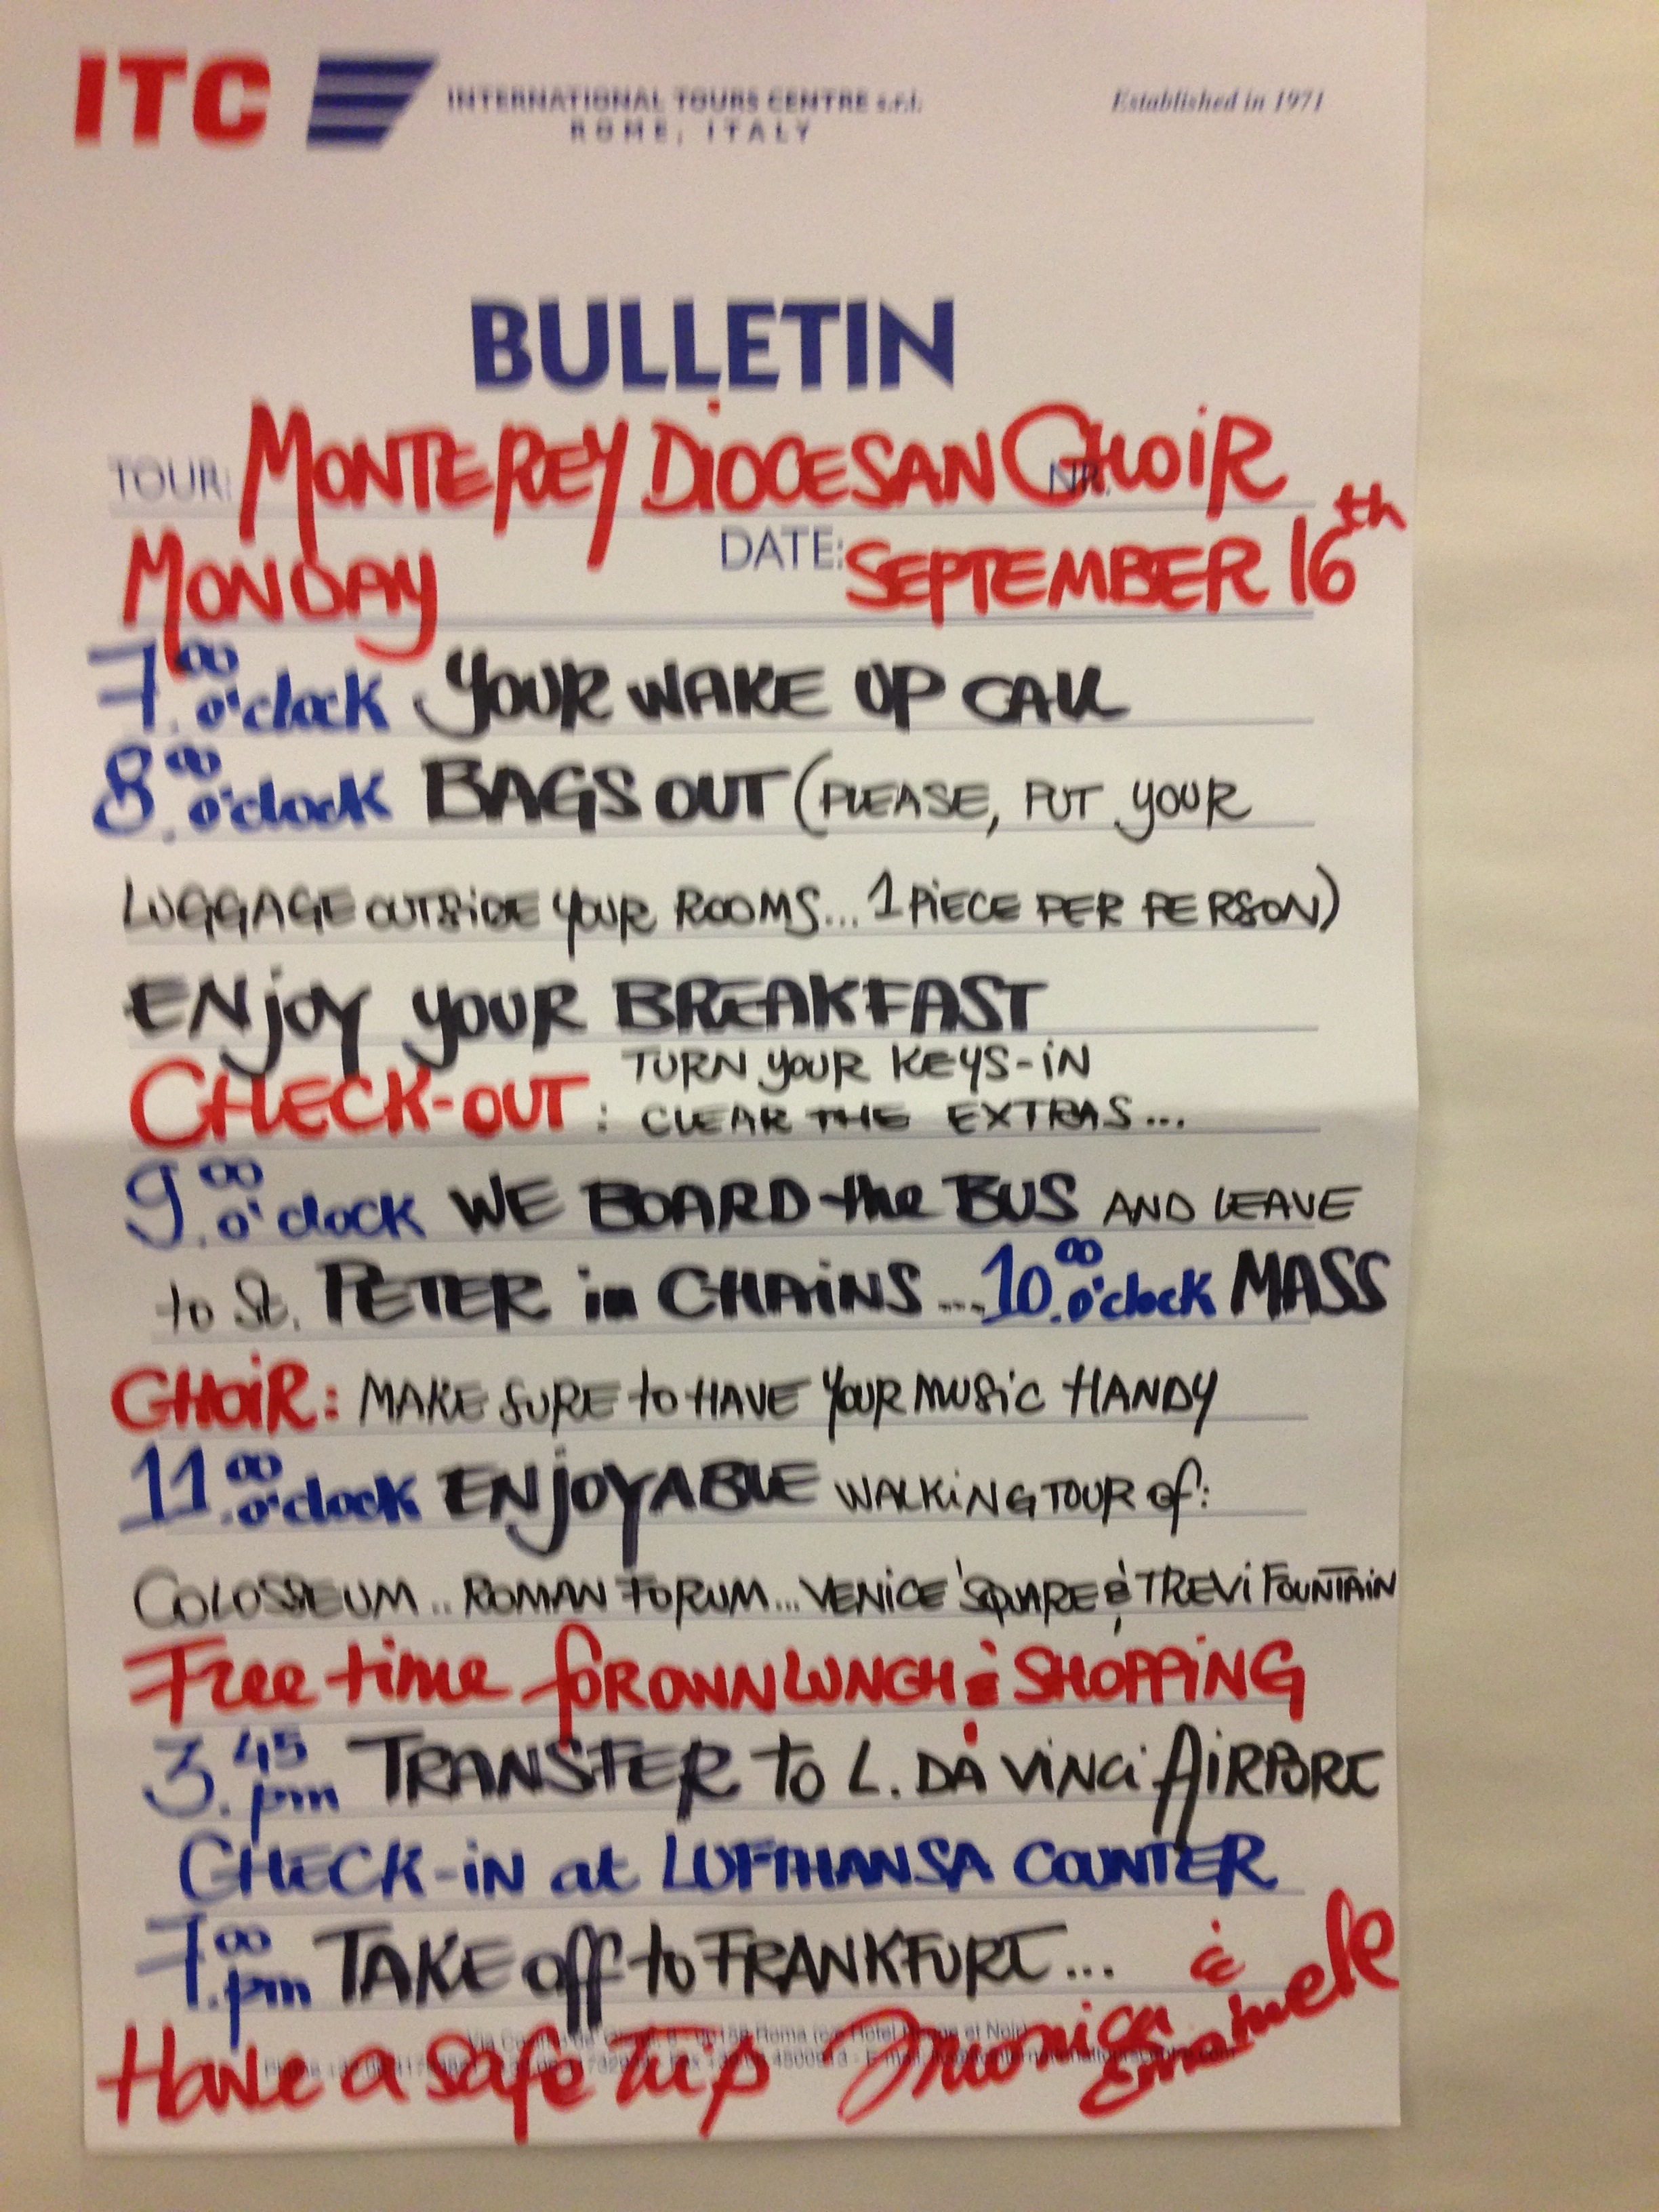 ITC INTERNATIONAL TOURS CENTRE s.r.l. Established in 1971
ROME, ITALY
BULLETIN
TOUR: MONTEREY DIOCESAN CHOIR NR.
MONDAY DATE: SEPTEMBER 16th
7.00 o'clock YOUR WAKE UP CALL
8.00 o'clock BAGS OUT (PLEASE, PUT YOUR
LUGGAGE OUTSIDE YOUR ROOMS... 1 PIECE PER PERSON)
ENJOY YOUR BREAKFAST
CHECK-OUT: TURN YOUR KEYS-IN
CLEAR THE EXTRAS...
9.00 o'clock WE BOARD the BUS AND LEAVE
to St. PETER in CHAINS ... 10.00 o'clock MASS
CHOIR: MAKE SURE to HAVE YOUR MUSIC HANDY
11.00 o'clock ENJOYABLE WALKING TOUR of:
COLOSSEUM .. ROMAN FORUM... VENICE SQUARE & TREVI FOUNTAIN
Free time for OWN LUNCH & SHOPPING
3.45 pm TRANSFER to L. DA VINCI AIRPORT
CHECK-IN at LUFTHANSA COUNTER
7.00 pm TAKE off to FRANKFURT... &
Have a safe trip Monica Emanuele